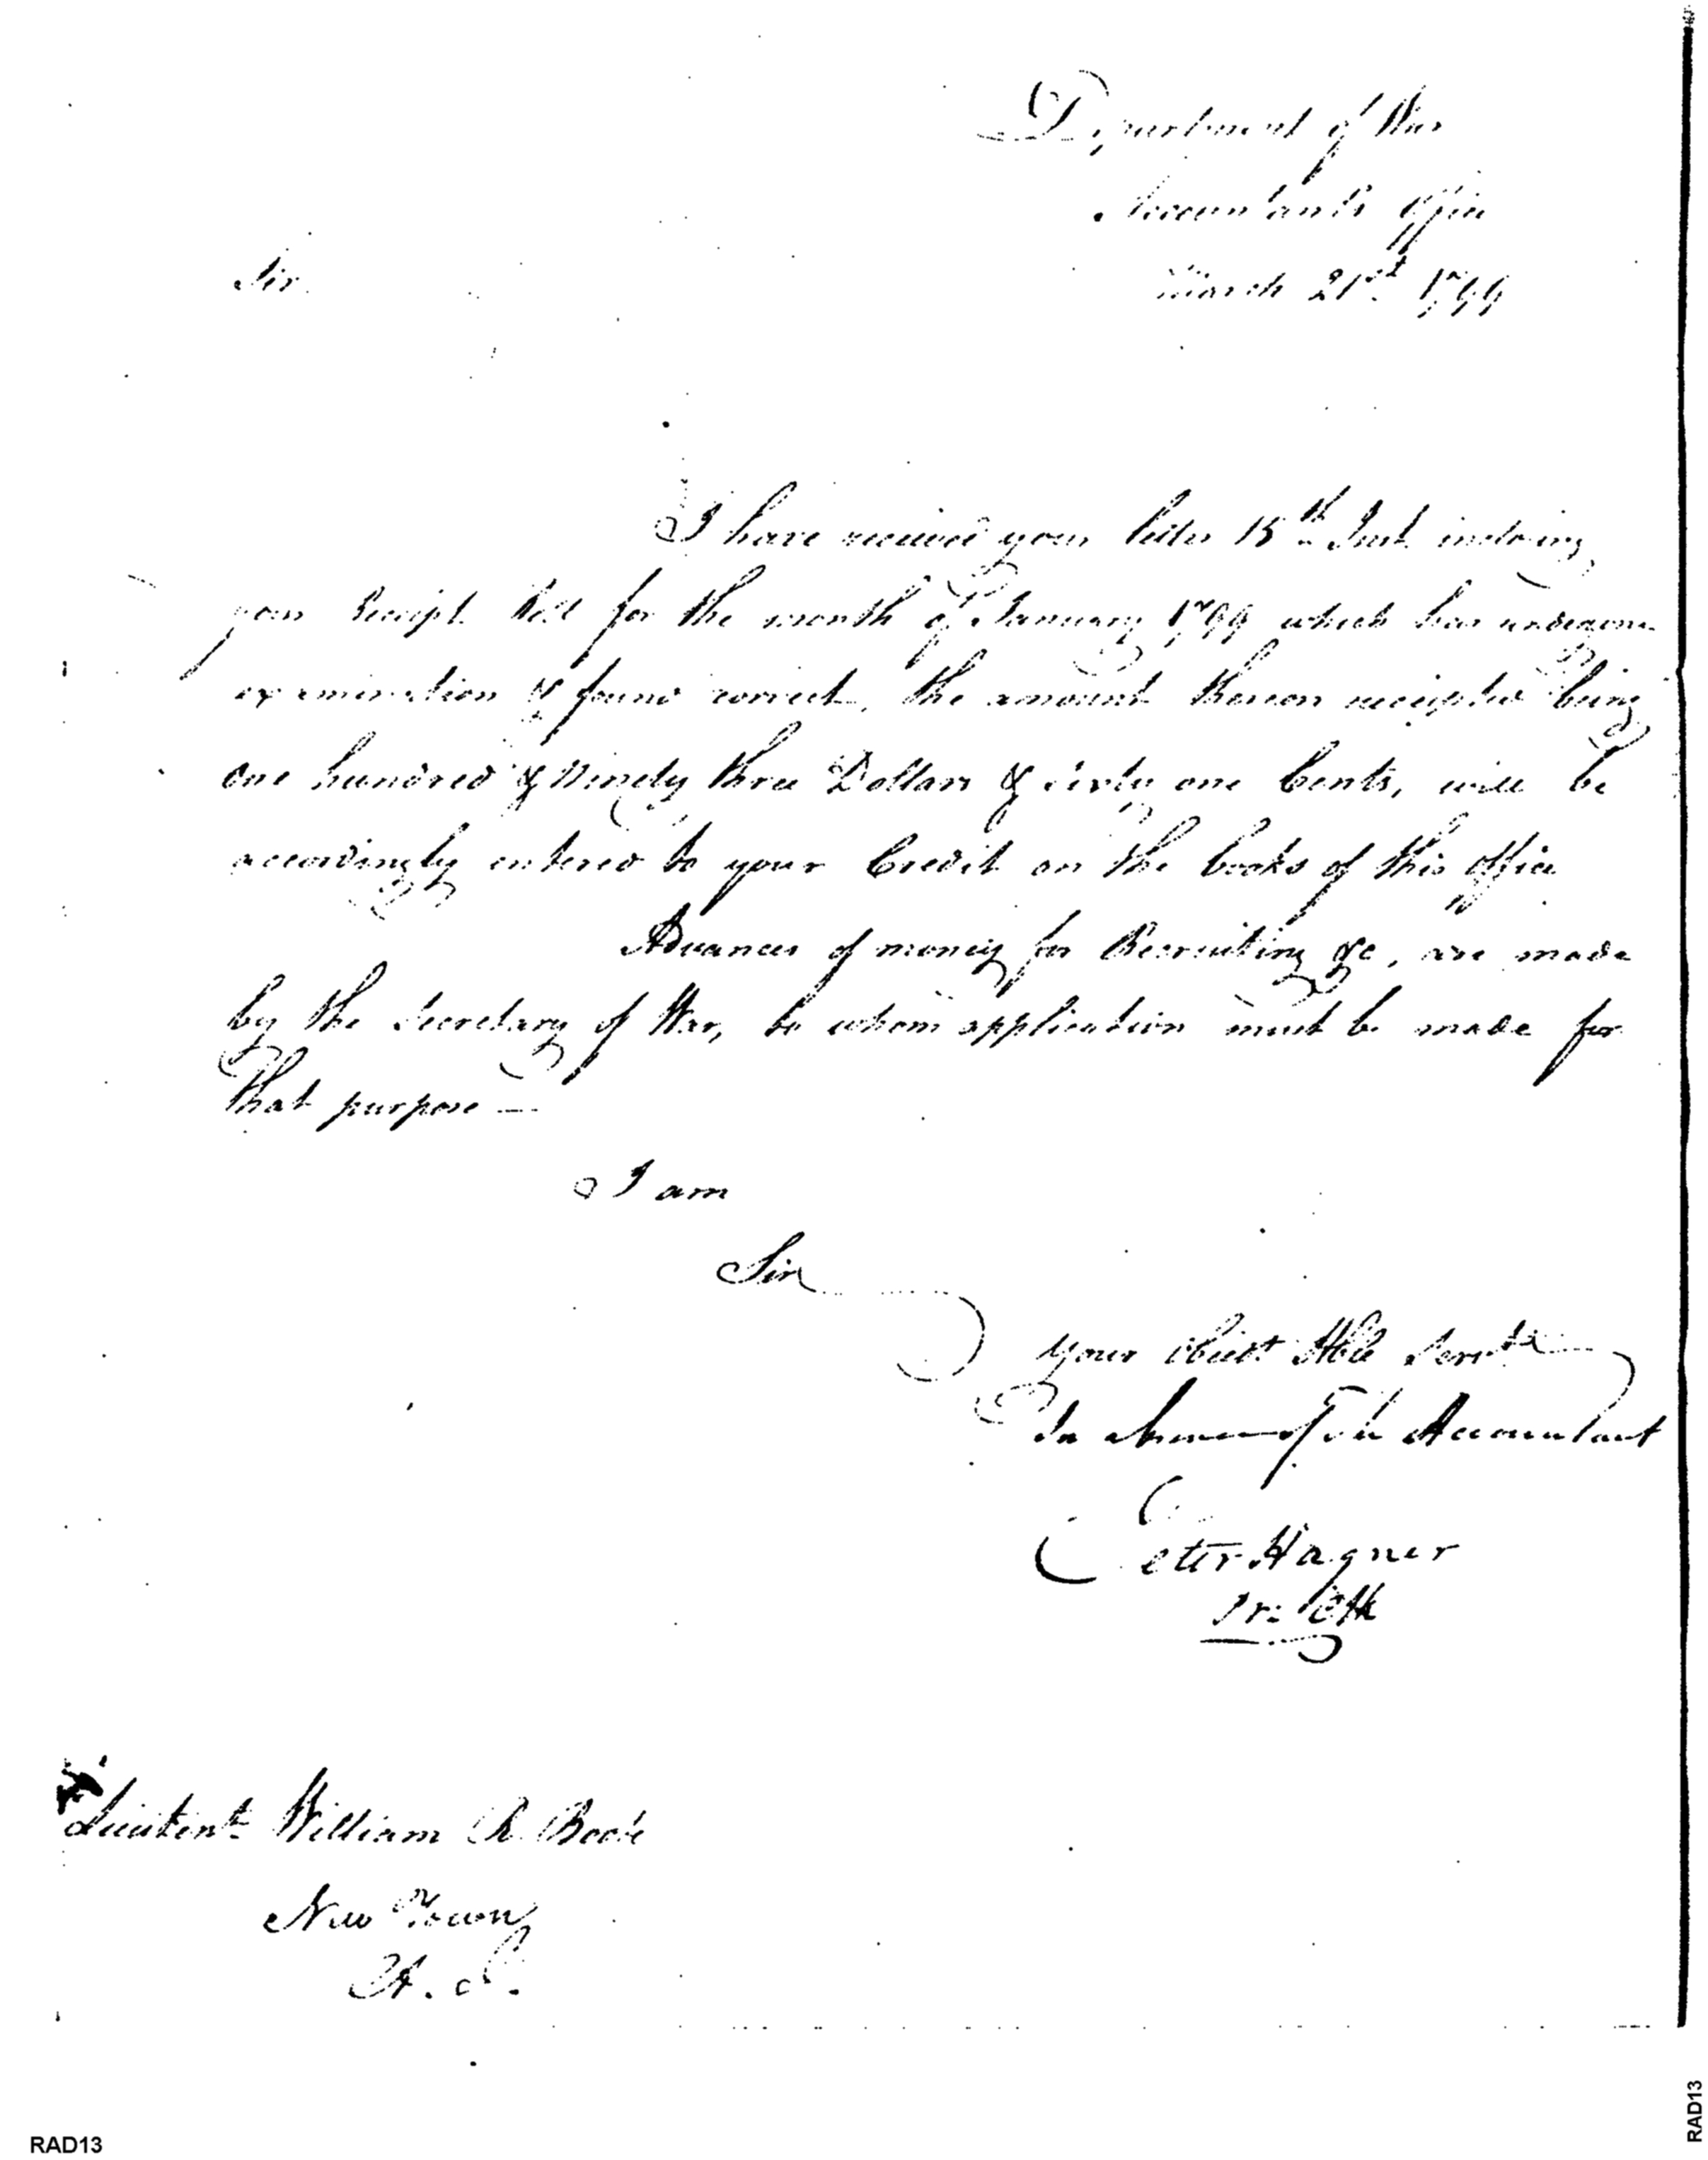 Department of War
Accountants Office
March 21st 1799
Sir
I have received your letter 15th Inst. inclosing
your Receipt Roll for the month of January 1799 which has undergone
examination & found correct, the amount thereon receipted being
One hundred & Ninety three Dollars & sixty one Cents, will be
accordingly entered to your Credit on the books of this office
Advances of money for Recruiting &c, are made
by the Secretary of War, to whom application must be made for
that purpose —
I am
Sir
Your Obedt Hble Servt
In absence of the Accountant
Peter Hagner
Pr: Clk
Lieutent William R. Boote
New Town
RAD13
RAD13